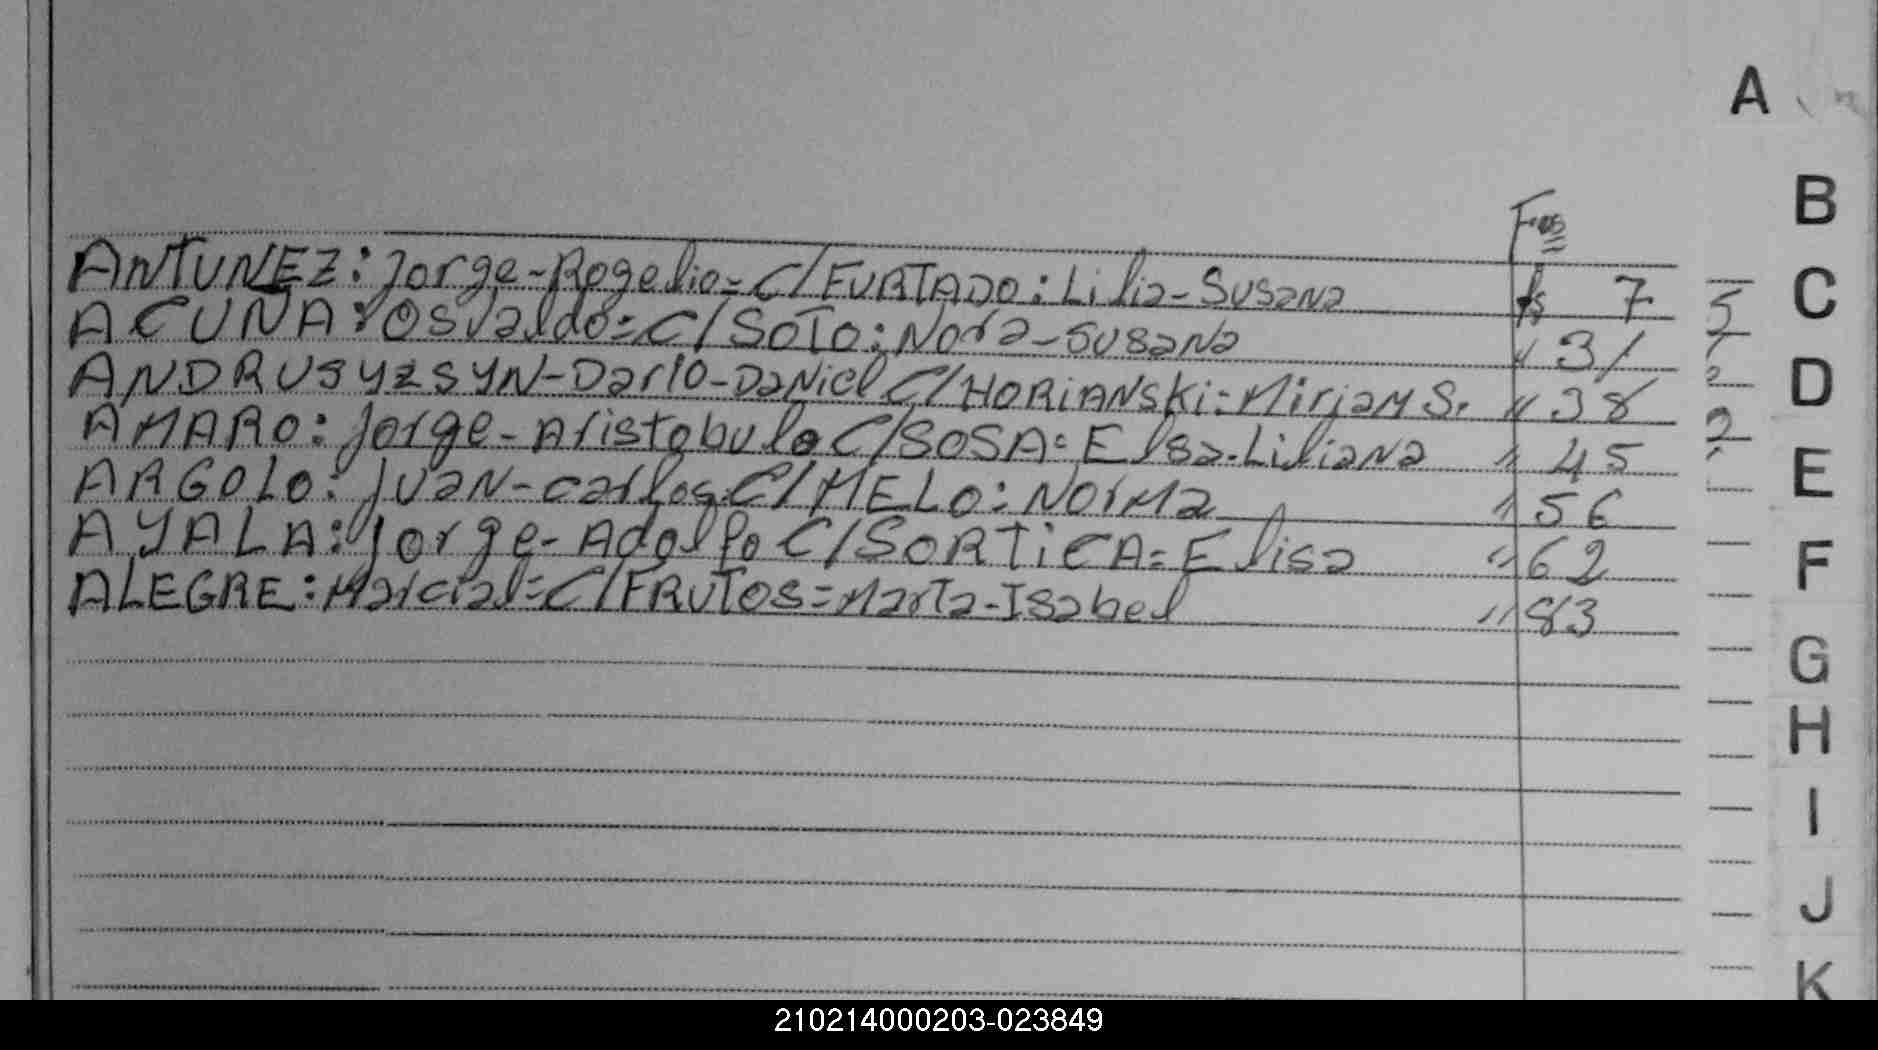 A
B
Fos
ANTUNEZ: Jorge-Rogelio=C/FURTADO: Lilia-Susana fs 7
ACUÑA: Osvaldo=C/SOTO: Nora-Susana " 31
ANDRUSYZSYN-Dario-Daniel C/HORIANSki: Mirjam S. " 38
AMARO: Jorge-Aristobulo C/SOSA: Elsa-Liliana " 45
ARGOLO: Juan-carlos C/MELO: Norma " 56
AYALA: Jorge-Adolfo C/SORTiCA: Elisa " 62
ALEGRE: Marcial=C/FRUTOS=Marta-Isabel " 83
C
D
E
F
G
H
I
J
K
210214000203-023849